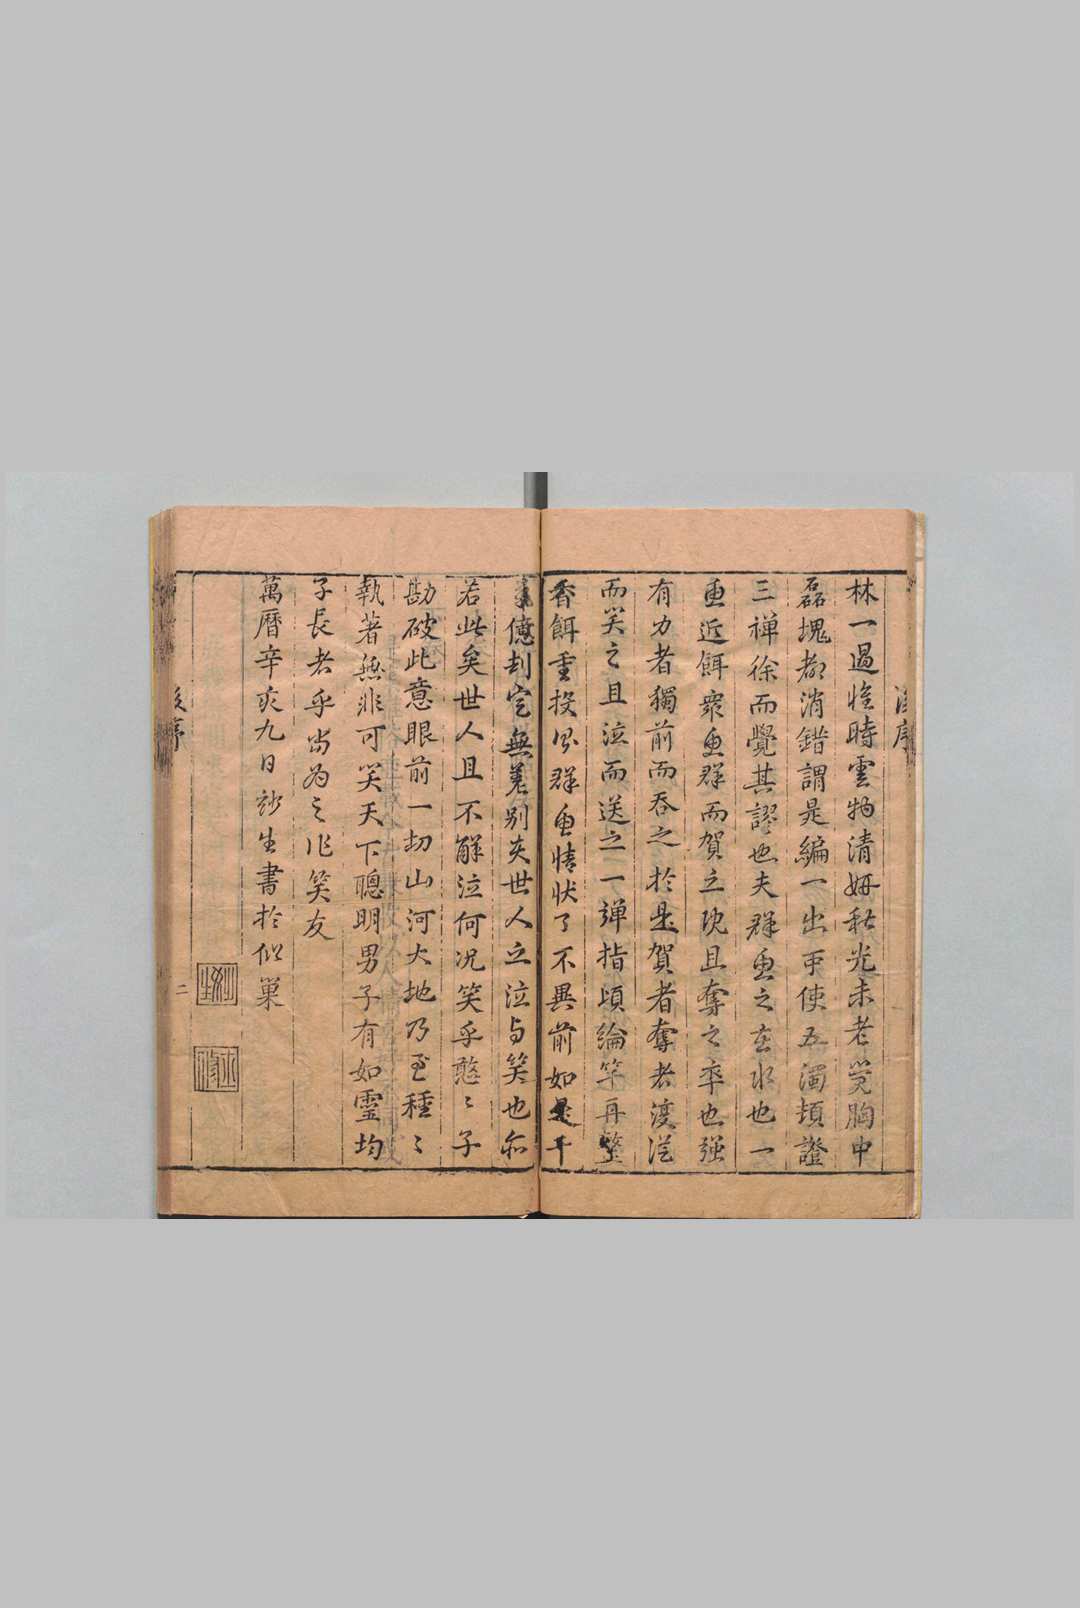 後序
林一過惟時雲物清妍秋光未老覺胸中
磊塊都消錯謂是編一出可使五濁頓證
三禅徐而覺其謬也夫群魚之在水也一
魚近餌衆魚群而賀之既且奪之卒也強
有力者獨前而吞之於是賀者奪者復從
而笑之且泣而送之一弹指頃綸竿再整
香餌重投以群魚情状了不異前如是千
億刦定無差别夫世人之泣与笑也亦
若此矣世人且不解泣何况笑乎憨憨子
勘破此意眼前一切山河大地乃至種種
執著無非可笑天下聰明男子有如靈均
子長者乎當為之作笑友
萬曆辛亥九日 生書於似巢
後序
二